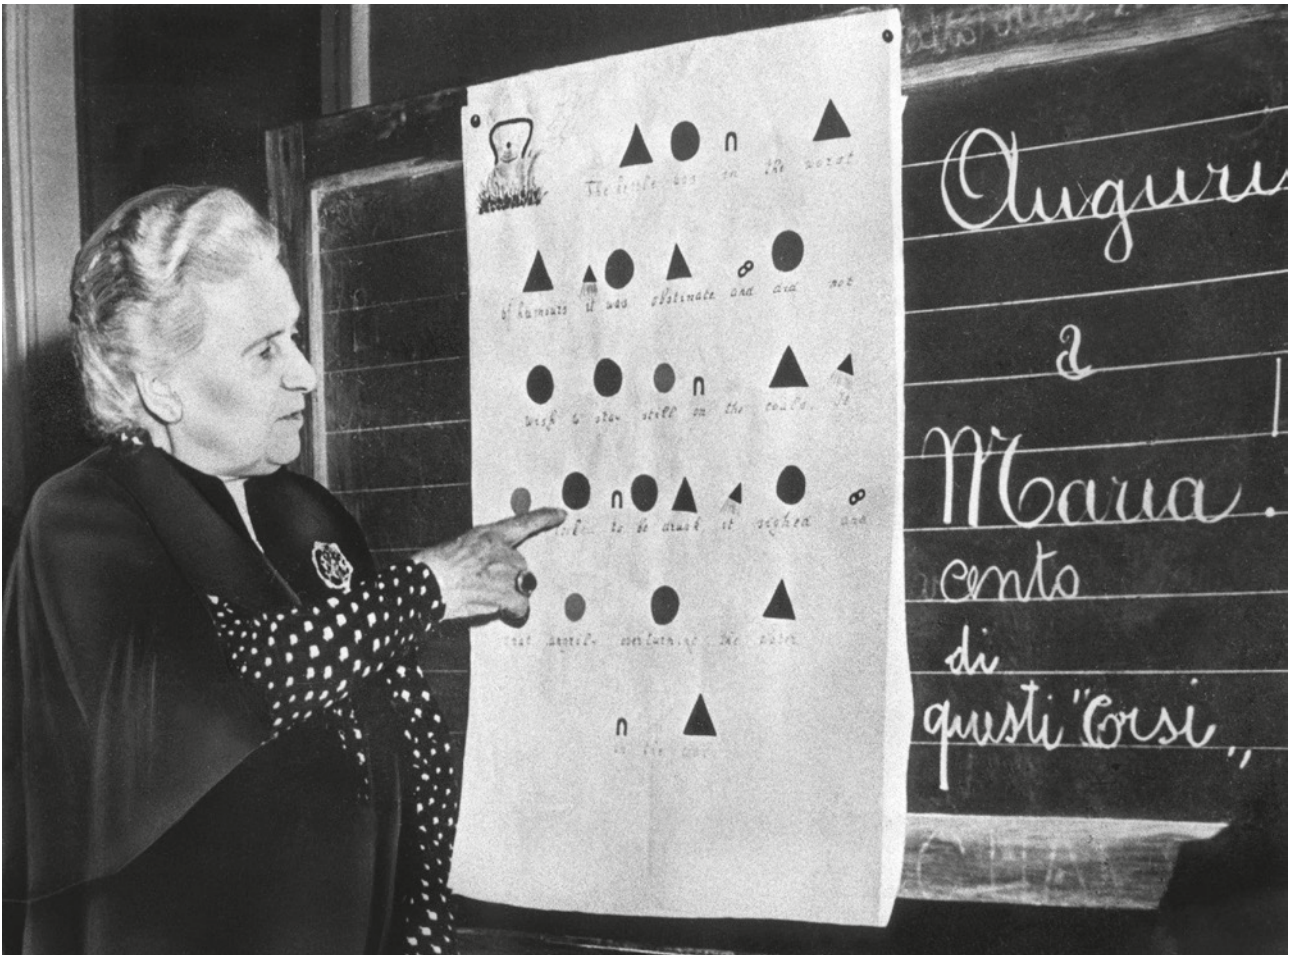 The kettle was in the worst
of humours it was obstinate and did not
wish to stay still on the coals. It
looked to be drunk it sighed and
spat angrily overturning the water
in the
Auguri
a
Maria!
cento
di
questi "Corsi„